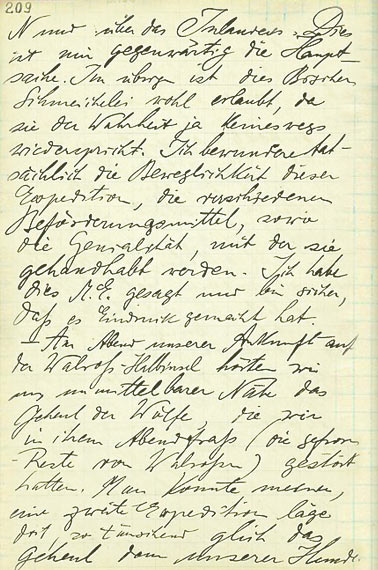 209
N und über das Inlandeis. Dies
ist mir gegenwärtig die Haupt-
sache. Im übrigen ist dies Bisschen
Schmeichelei wohl erlaubt, da
sie der Wahrheit ja keineswegs
widerspricht. Ich bewundere tat-
sächlich die Beweglichkeit dieser
Expedition, die verschiedenen
Beförderungsmittel, sowie
die Genialität, mit der sie
gehandhabt werden. Ich habe
dies M.E. gesagt und bin sicher,
daß es Eindruck gemacht hat.
– Am Abend unserer Ankunft auf
der Walroß-Halbinsel hörten wir
in unmittelbarer Nähe das
Geheul der Wölfe, die wir
in ihrem Abendfraß (die gefror.
Reste von Walrossen) gestört
hatten. Man könnte meinen,
eine zweite Expedition läge
dort, so täuschend glich das
Geheul dem unserer Hunde.